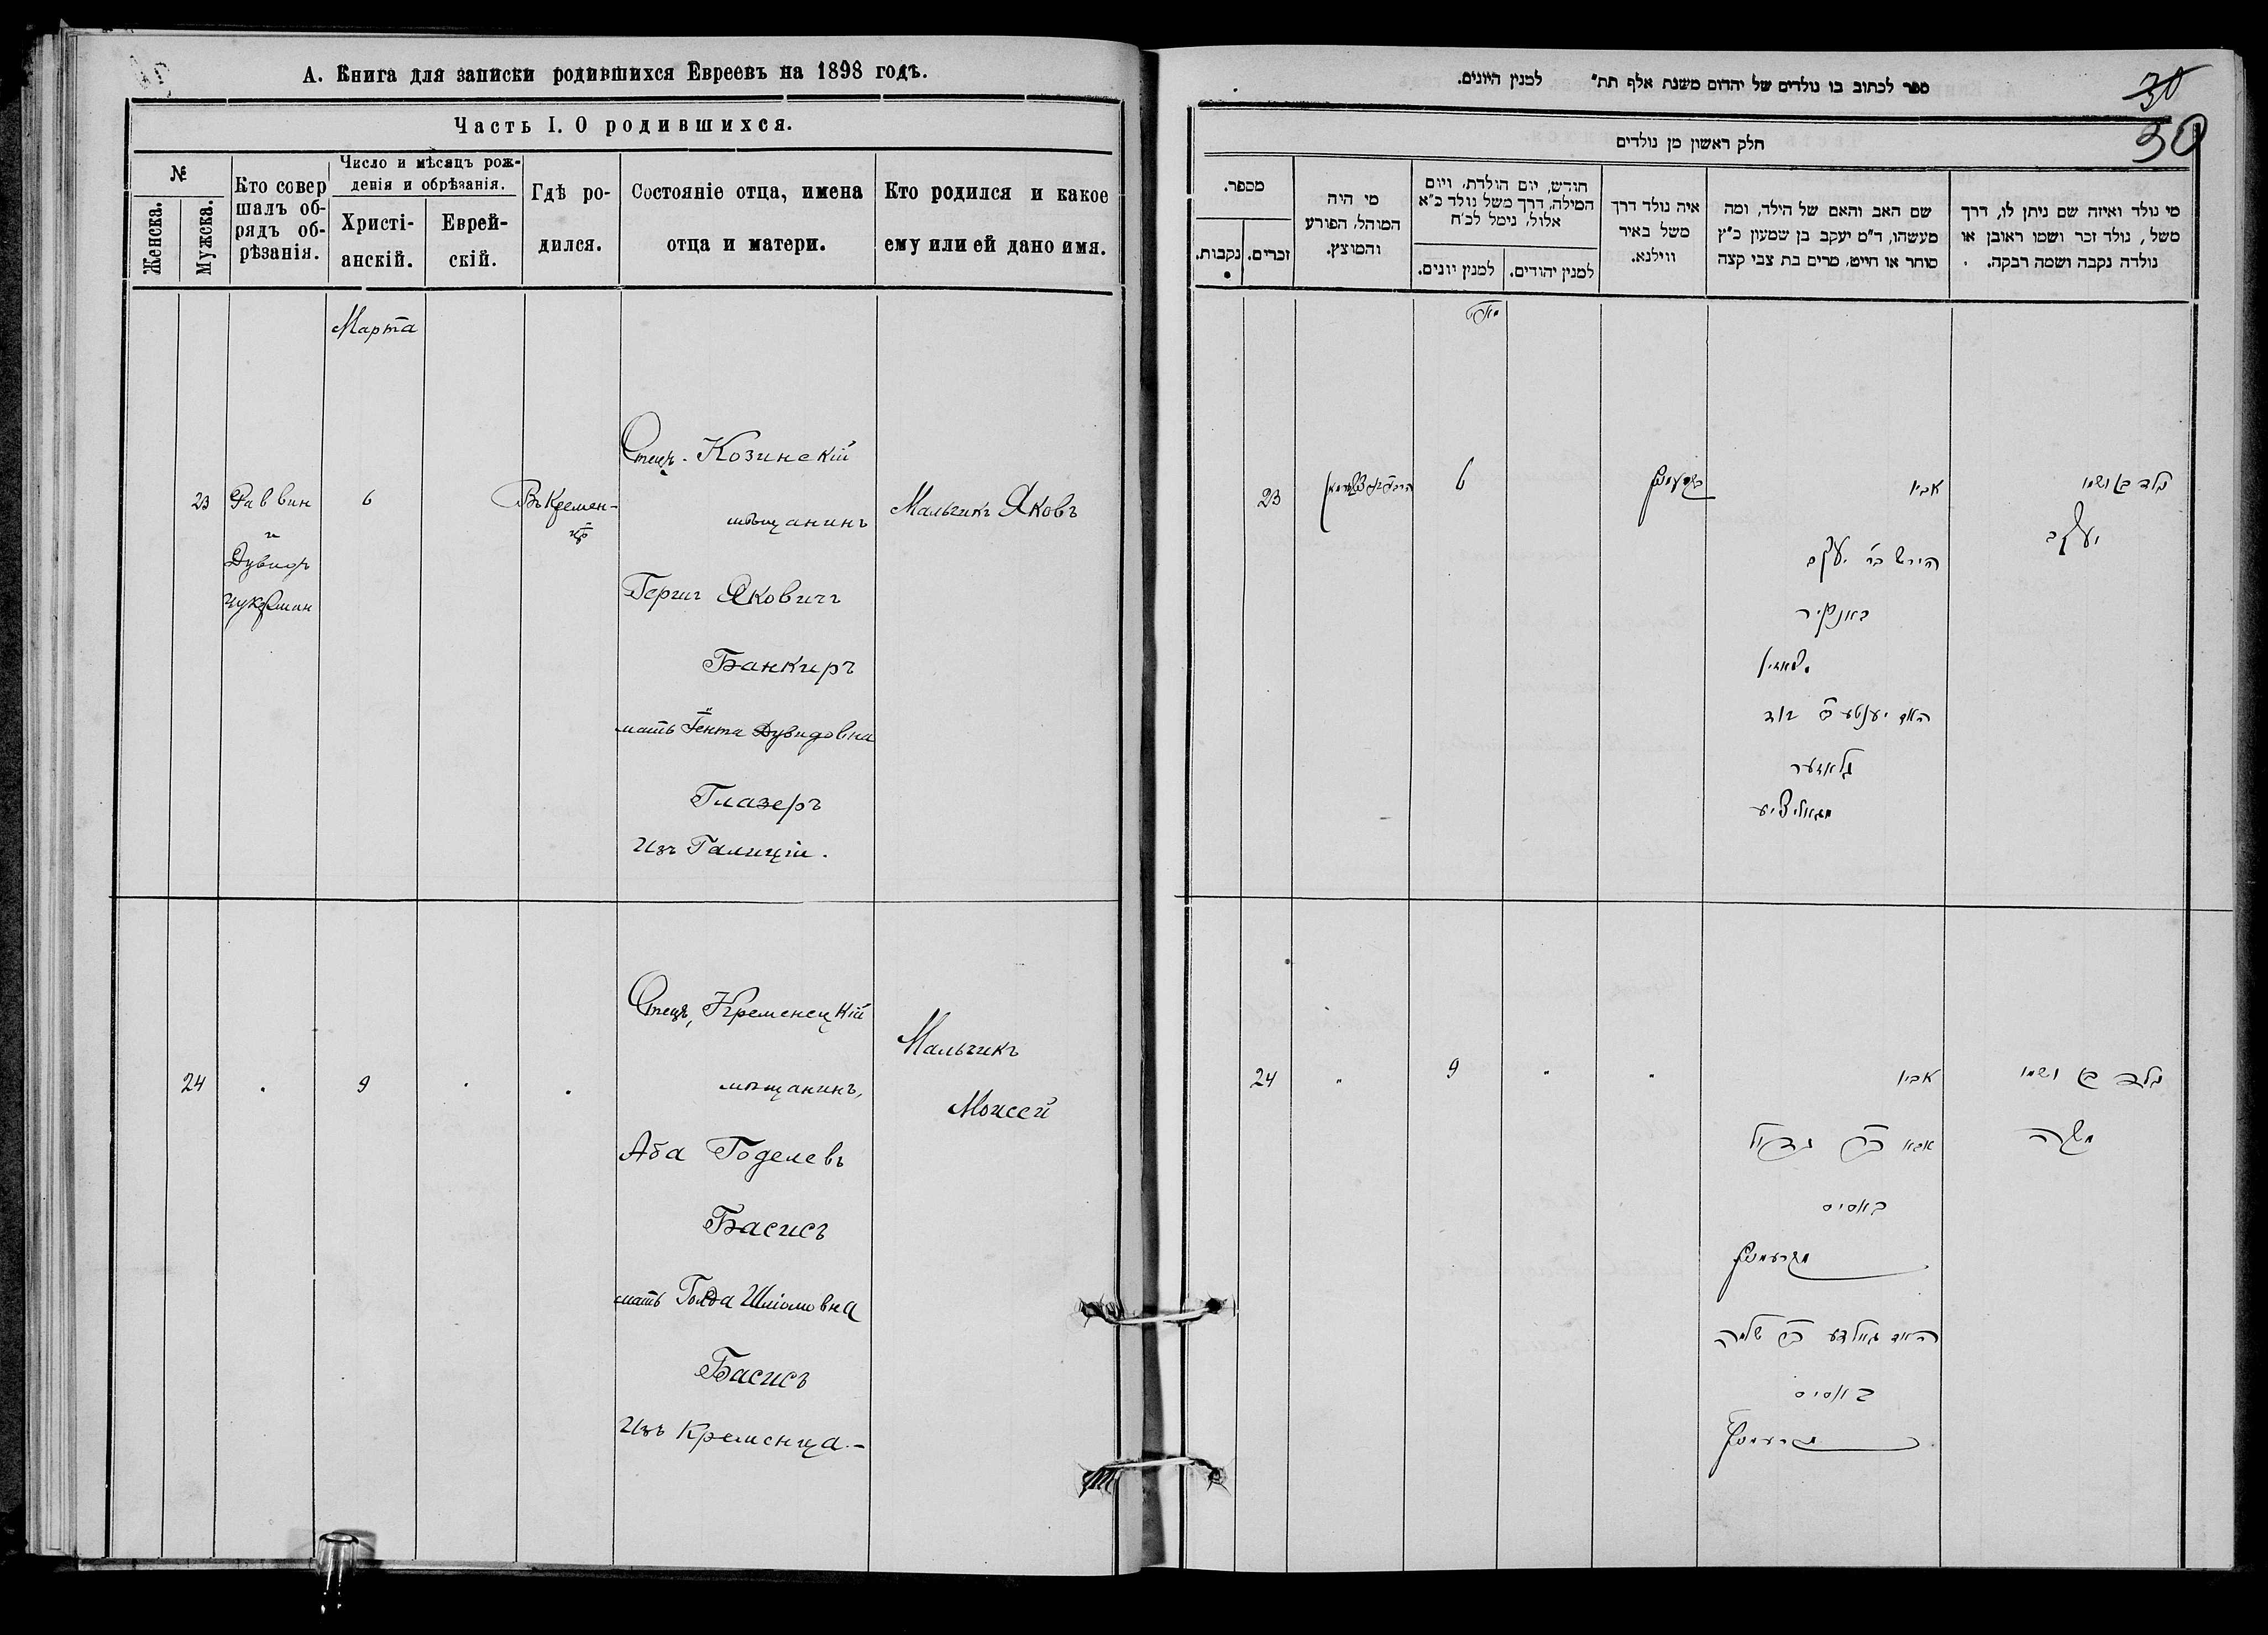 А. Книга для записки родившихся Евреевъ на 1898 годъ.
Часть I. О родившихся.
№
Женска.
Мужска.
Кто совер
шалъ об-
рядъ об-
рѣзанія.
Число и мѣсяцъ рож-
денія и обрѣзанія.
Христі-
анскій.
Еврей-
скій.
Гдѣ ро-
дился.
Состояніе отца, имена
отца и матери.
Кто родился и какое
ему или ей дано имя.
Марта
23
Раввин
и
Дувидъ
Цукерман
6
Въ Кремен-
цѣ
Отецъ - Козинскій
мѣщанинъ
Герш Яковичъ
Банкиръ
мать Гента Дувидовна
Глазеръ
Изъ Галиціи.
Мальчикъ Яковъ
24
9
Отецъ, Кременецкій
мѣщанинъ,
Аба Годелевъ
Басисъ
мать Голда Шліомовна
Басисъ
Изъ Кременца.-
Мальчикъ
Моисей
ספר לכתוב בו נולדים של יהדום משנת אלף תת״ למנין היונים.
30
30
חלק ראשון מן נולדים
מספר.
נקבות.
זכרים.
מי היה
המוהל, הפורע
והמוצץ.
חודש, יום הולדת, ויום
המילה, דרך משל נולד כ״א
אלול, נימל לכ״ח
למנין יונים.
למנין יהודים.
איה נולד דרך
משל באיר
ווילנא.
שם האב והאם של הילד, ומה
מעשהו, ד״מ יעקב בן שמעון כ״ץ
סוחר או חייט, מרים בת צבי קצה
מי נולד ואיזה שם ניתן לו, דרך
משל, נולד זכר ושמו ראובן או
נולדה נקבה ושמה רבקה.
23
6
אביו
הירש בר יעקב
באנקיר
האם יענטע
גלאזער
מגאליציע
נולד בן ושמו
יעקב
24
9
אביו
אבא
באסיס
מקרעמניץ
האם גאלדע בת שלמה
באסיס
מקרעמניץ
נולד בן ושמו
משה